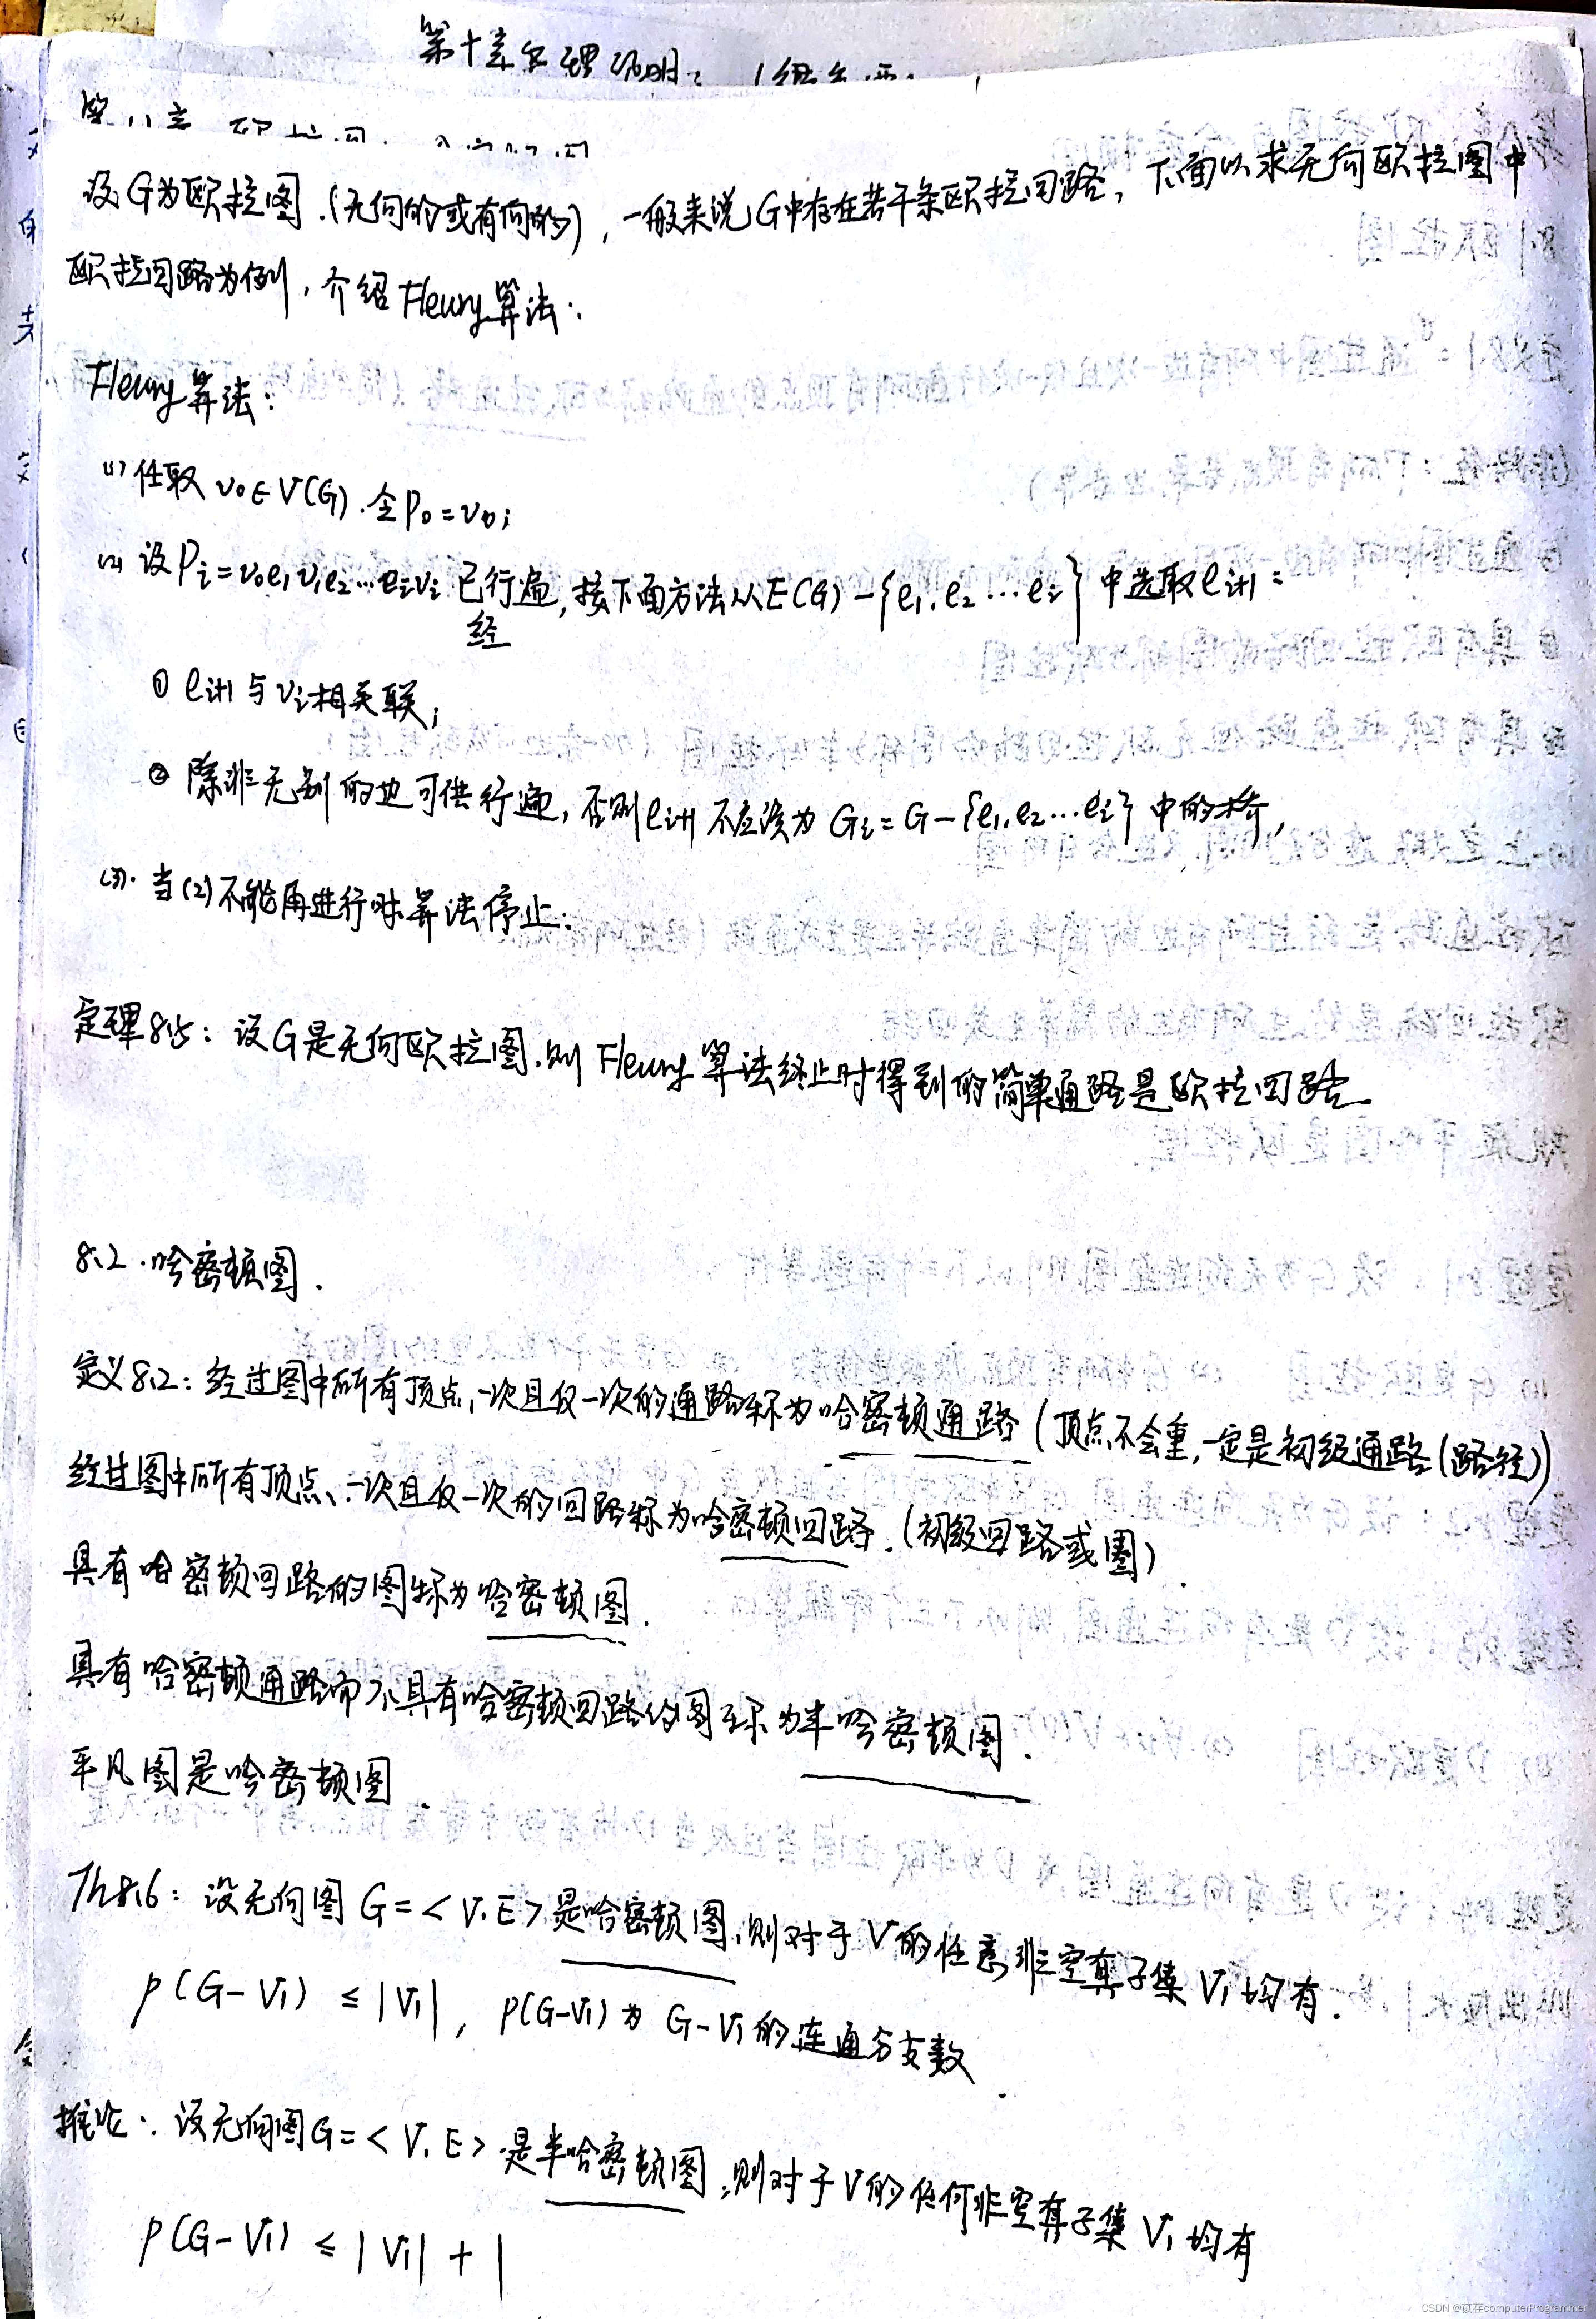 设G为欧拉图.(无向的或有向的),一般来说G中存在若干条欧拉回路,下面以求无向欧拉图中
欧拉回路为例,介绍Fleury算法:
Fleury算法:
(1) 任取 v0∈V(G).令P0=v0;
(2) 设Pi=v0e1v1e2…eivi 已行遍,按下面方法从E(G)-{e1,e2…ei}中选取ei+1:
经
① ei+1与vi相关联;
② 除非无别的边可供行遍,否则ei+1不应该为Gi=G-{e1,e2…ei}中的桥,
(3). 当(2)不能再进行时算法停止.
定理8.5:设G是无向欧拉图.则Fleury算法终止时得到的简单通路是欧拉回路
8.2.哈密顿图.
定义8.2:经过图中所有顶点一次且仅一次的通路称为哈密顿通路(顶点不会重,一定是初级通路(路径))
经过图中所有顶点、一次且仅一次的回路称为哈密顿回路.(初级回路或圈).
具有哈密顿回路的图称为哈密顿图.
具有哈密顿通路而不具有哈密顿回路的图称为半哈密顿图.
平凡图是哈密顿图.
Th8.6:设无向图G=<V,E>是哈密顿图,则对于V的任意非空真子集V1均有.
p(G-V1)≤|V1|,p(G-V1)为G-V1的连通分支数.
推论:设无向图G=<V,E>是半哈密顿图,则对于V的任何非空真子集V1均有
p(G-V1)≤|V1|+1
CSDN @苡荏computerProgrammer